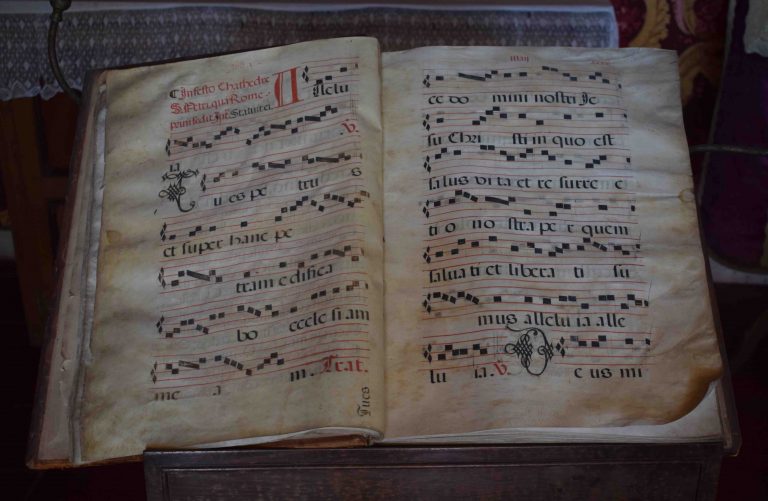 In festo Chathedre
S. Petri, qua Rome
A llelu
V.
Tu es pe tru s
et super hanc pe
tram edifica
bo eccle si am
me a m. Trat.
Tu es
Maij
ce do mini nostri Ie
su Chri sti in quo est
salus vi ta et re surre c
ti o no stra pe r quem
salua ti et libera ti su
mus allelu ia alle
lu ia. V. D e us mi